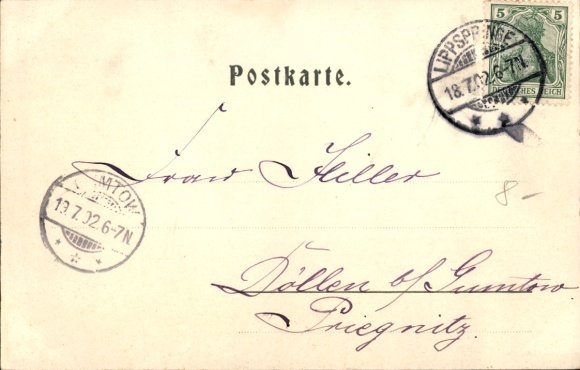 5 5
DEUTSCHES REICH
LIPPSPRINGE
18.7.02.6-7N.
Postkarte.
Frau Hiller
8-
GUMTOW
19.7.02.6-7N.
Döllen b/ Gumtow
Priegnitz.